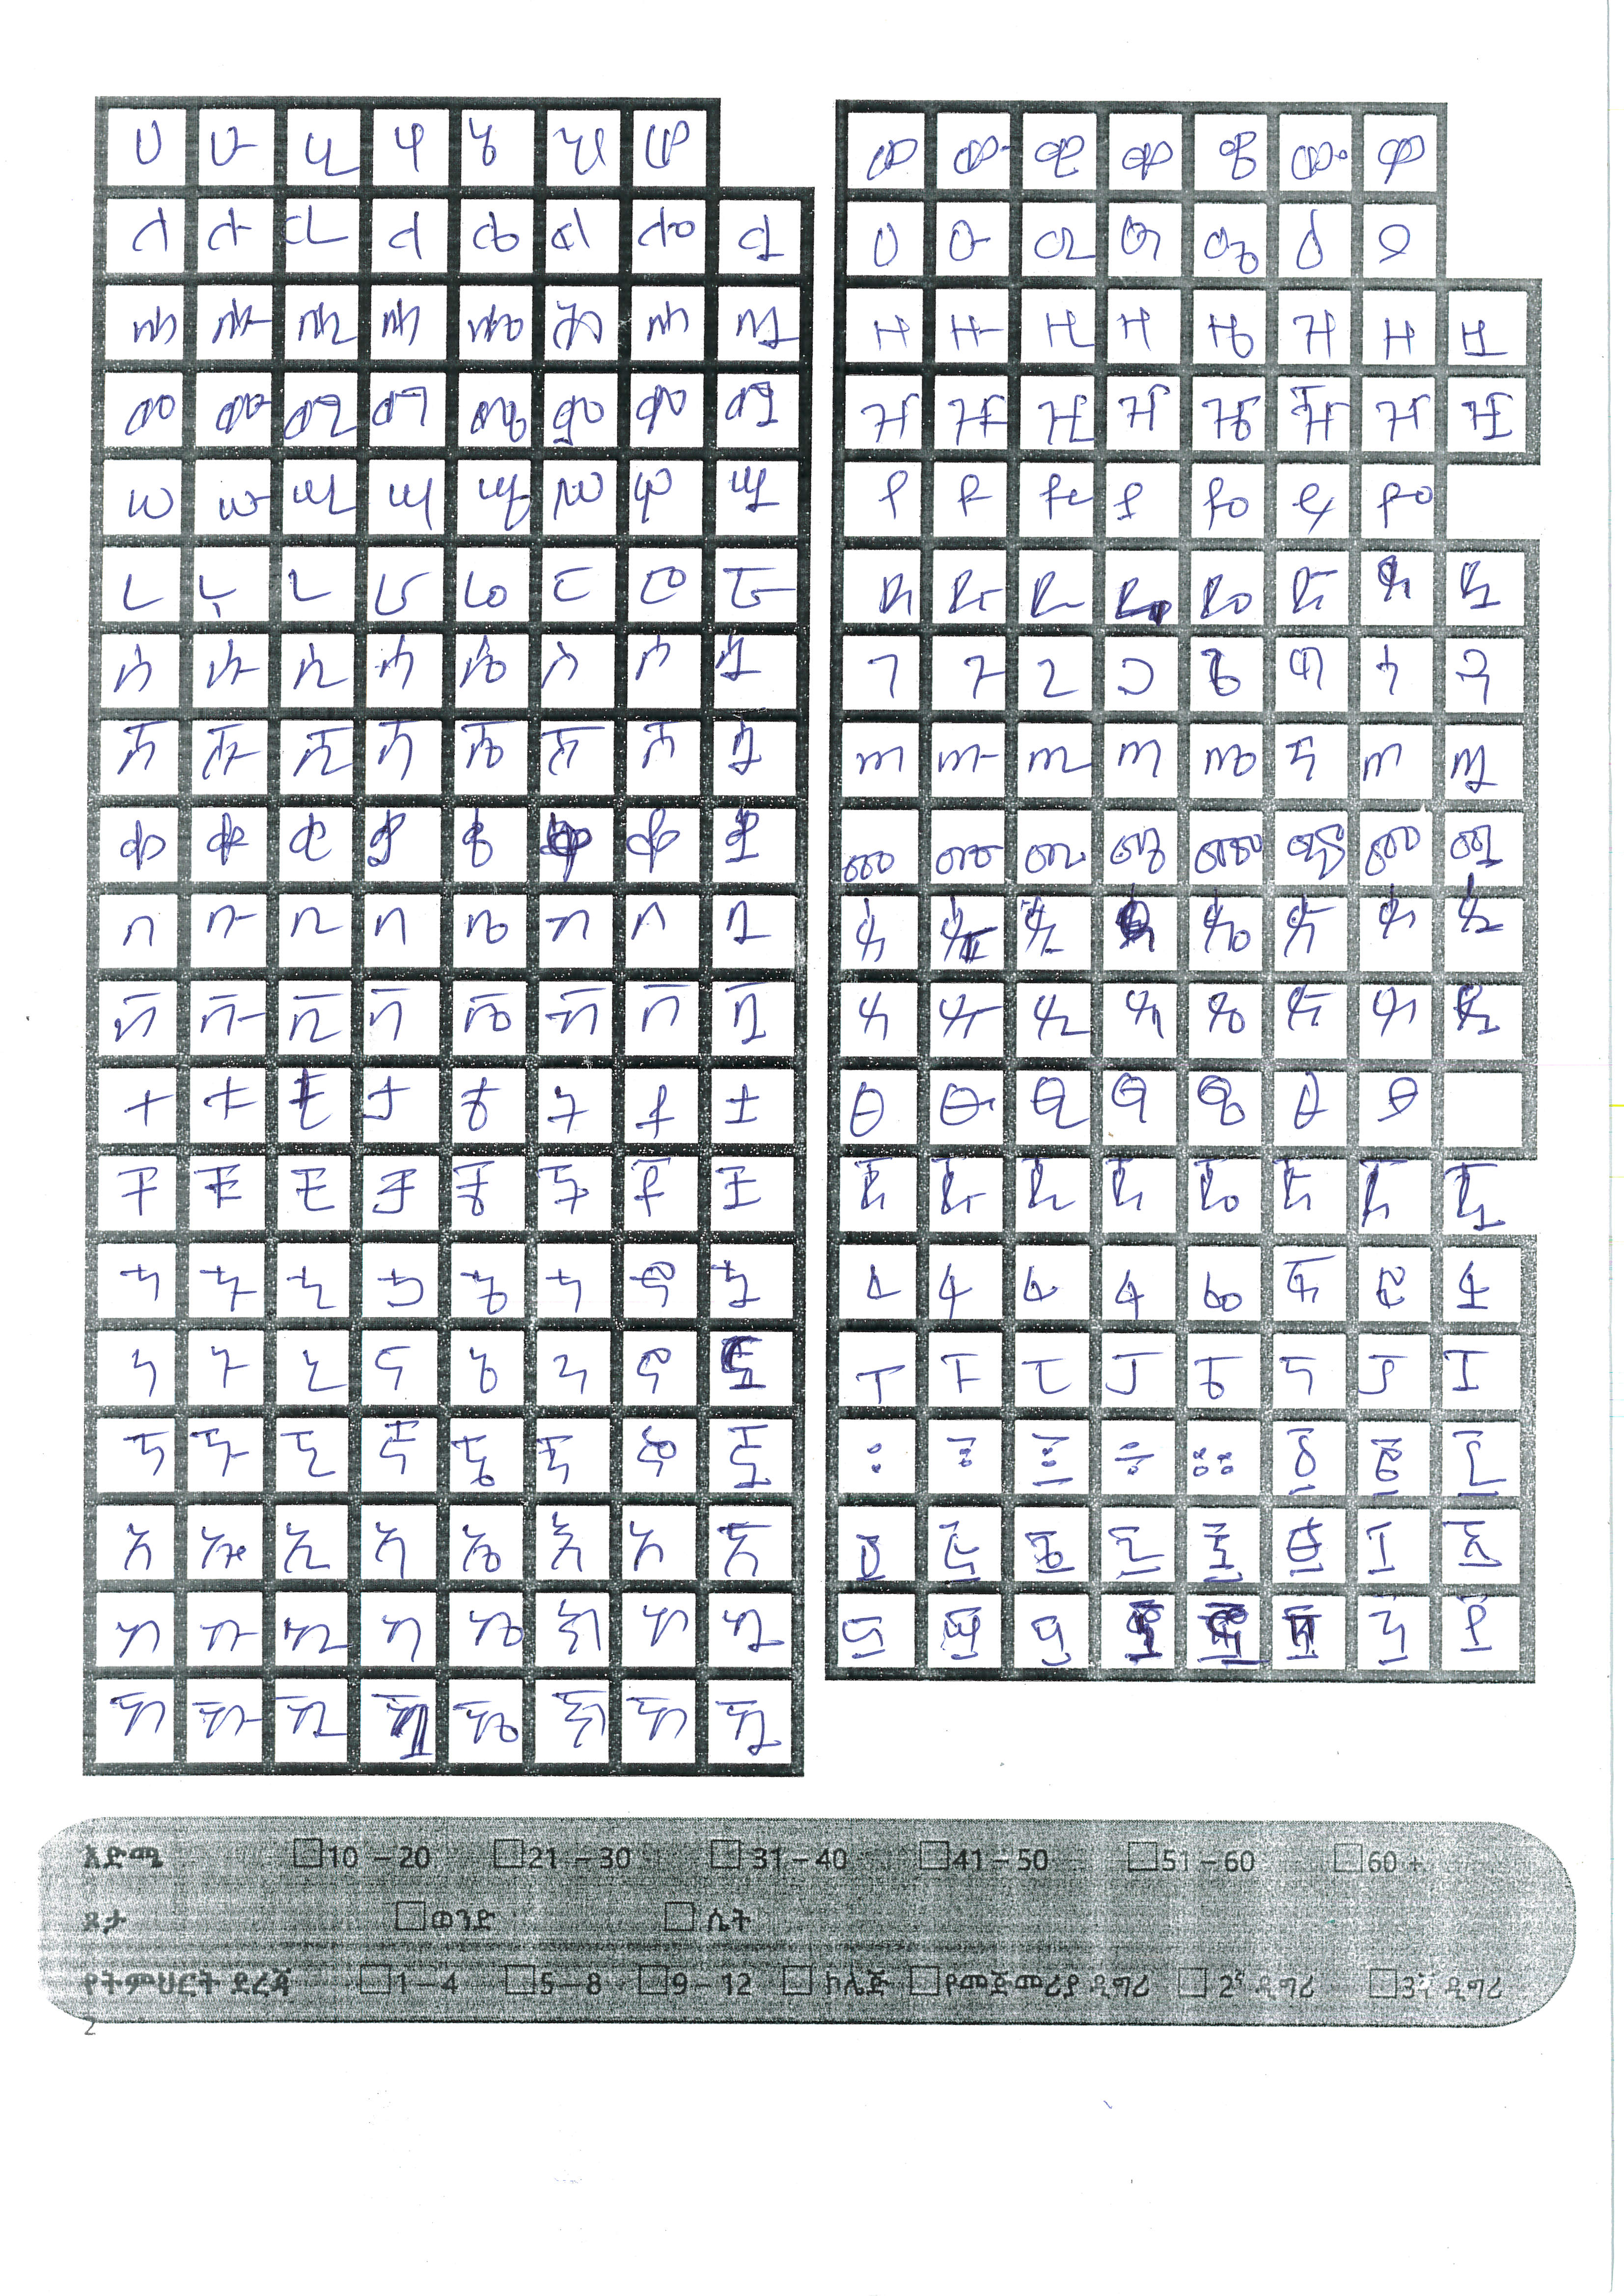 ሀ ሁ ሂ ሃ ሄ ህ ሆ
ለ ሉ ሊ ላ ሌ ል ሎ ሏ
ሐ ሑ ሒ ሓ ሔ ሕ ሖ ሗ
መ ሙ ሚ ማ ሜ ም ሞ ሟ
ሠ ሡ ሢ ሣ ሤ ሥ ሦ ሧ
ረ ሩ ሪ ራ ሬ ር ሮ ሯ
ሰ ሱ ሲ ሳ ሴ ስ ሶ ሷ
ሸ ሹ ሺ ሻ ሼ ሽ ሾ ሿ
ቀ ቁ ቂ ቃ ቄ ቆ ቋ
በ ቡ ቢ ባ ቤ ብ ቦ ቧ
ቨ ቩ ቪ ቫ ቬ ቭ ቮ ቯ
ተ ቱ ቲ ታ ቴ ት ቶ ቷ
ቸ ቹ ቺ ቻ ቼ ች ቾ ቿ
ኀ ኁ ኂ ኃ ኄ ኅ ኆ ኋ
ነ ኑ ኒ ና ኔ ን ኖ
ኘ ኙ ኚ ኛ ኜ ኝ ኞ ኟ
አ ኡ ኢ ኣ ኤ እ ኦ ኧ
ከ ኩ ኪ ካ ኬ ክ ኮ ኳ
ኸ ኹ ኺ ኼ ኽ ኾ ዃ
ወ ዉ ዊ ዋ ዌ ው ዎ
ዐ ዑ ዒ ዓ ዔ ዕ ዖ
ዘ ዙ ዚ ዛ ዜ ዝ ዞ ዟ
ዠ ዡ ዢ ዣ ዤ ዥ ዦ ዧ
የ ዩ ዪ ያ ዬ ይ ዮ
ደ ዱ ዲ ዴ ድ ዶ ዷ
ገ ጉ ጊ ጋ ጌ ግ ጎ ጓ
ጠ ጡ ጢ ጣ ጤ ጥ ጦ ጧ
ጨ ጩ ጪ ጫ ጬ ጭ ጮ ጯ
ጰ ጱ ጲ ጴ ጵ ጶ ጷ
ጸ ጹ ጺ ጻ ጼ ጽ ጾ ጿ
ፀ ፁ ፂ ፃ ፄ ፅ ፆ
ጀ ጁ ጂ ጃ ጄ ጅ ጆ ጇ
ፈ ፉ ፊ ፋ ፌ ፍ ፎ ፏ
ፐ ፑ ፒ ፓ ፔ ፕ ፖ ፗ
፡ ፤ ፦ ፥ ። ፩ ፪ ፫
፬ ፭ ፮ ፯ ፰ ፱ ፲ ፳
፴ ፵ ፶ ፺ ፻
እድሜ 10 – 20 21 – 30 31 – 40 41 – 50 51 – 60 60 +
ጾታ ወንድ ሴት
የትምህርት ደረጃ 1 – 4 5 – 8 9 – 12 ኮሌጅ የመጀመሪያ ዲግሪ 2ኛ ዲግሪ 3ኛ ዲግሪ
2